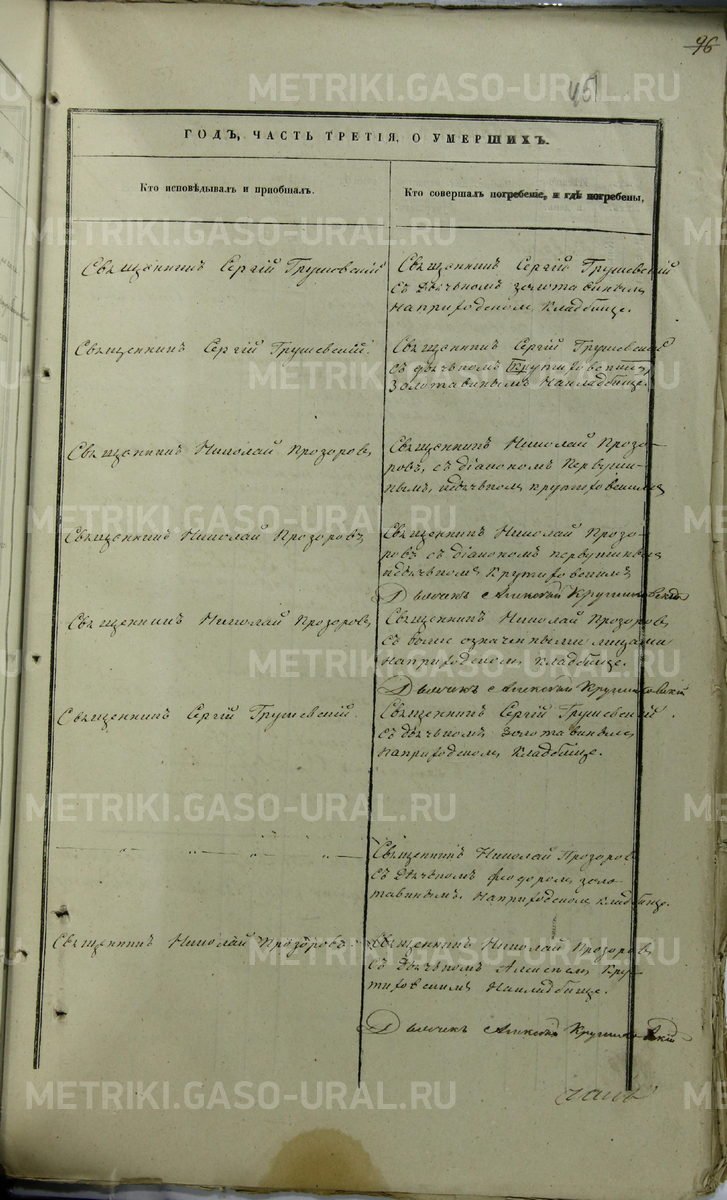 96
METRIKI.GASO-URAL.RU
ГОДЪ, ЧАСТЬ ТРЕТІЯ, О УМЕРШИХЪ.
Кто исповѣдывалъ и пріобщалъ.
Кто совершалъ погребеніе, и гдѣ погребены,
Священникъ Сергій Грушевскій
Священникъ Сергій Грушевскій
съ дьячкомъ Золотавинымъ
на приходскомъ кладбище.
Священникъ Сергій Грушевскій.
Священникъ Сергій Грушевскій
съ дьячкомъ
Золотавинымъ на кладбище.
Священникъ Николай Прозоровъ
Священникъ Николай Прозо-
ровъ, съ діакономъ Первуши-
нымъ, и дьячкомъ
Священникъ Николай Прозоровъ
Священникъ Николай Прозо-
ровъ съ діакономъ Первушинымъ
и дьячкомъ
Дьячекъ Алексей
Священникъ Николай Прозоровъ
Священникъ Николай Прозоровъ
съ выше означенными лицами
на приходскомъ кладбище.
Дьячекъ Алексей
Священникъ Сергій Грушевскій.
Священникъ Сергій Грушевскій.
съ дьячкомъ Золотавинымъ
на приходскомъ кладбище.
— „ — „ — „ — „ —
Священникъ Николай Прозоровъ
съ дьячкомъ Феодоромъ Золо-
тавинымъ. На приходскомъ кладбище.
Священникъ Николай Прозоровъ.
Священникъ Николай Прозоровъ
съ дьячкомъ Алексеемъ
на кладбище.
Дьячекъ Алексей